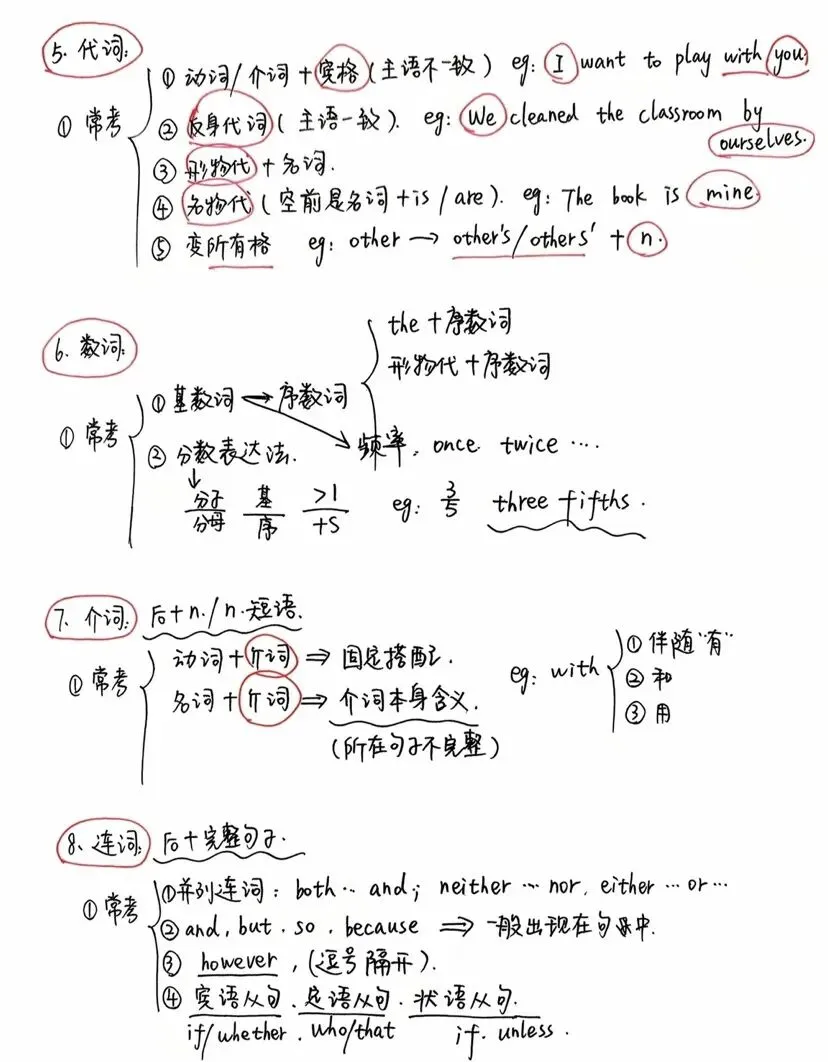 5. 代词:
① 常考
① 动词/介词 + 宾格 (主语不一致) eg: I want to play with you.
② 反身代词 (主语一致). eg: We cleaned the classroom by
ourselves.
③ 形物代 + 名词.
④ 名物代 (空前是名词 + is / are). eg: The book is mine.
⑤ 变所有格 eg: other → other's/others' + n.
6. 数词:
① 常考
① 基数词 → 序数词
the + 序数词
形物代 + 序数词
频率, once twice ....
② 分数表达法.
分子/分母 基/序 >1/+s eg: 3/5 three fifths.
7. 介词: 后+n./n.短语.
① 常考
动词 + 介词 ⇒ 固定搭配.
名词 + 介词 ⇒ 介词本身含义.
(所在句子不完整)
eg: with
① 伴随"有"
② 和
③ 用
8. 连词: 后+完整句子.
① 常考
① 并列连词: both … and; neither … nor, either … or …
② and, but, so, because ⇒ 一般出现在句中.
③ however, (逗号隔开).
④ 宾语从句. 定语从句. 状语从句.
if/whether. who/that if. unless.